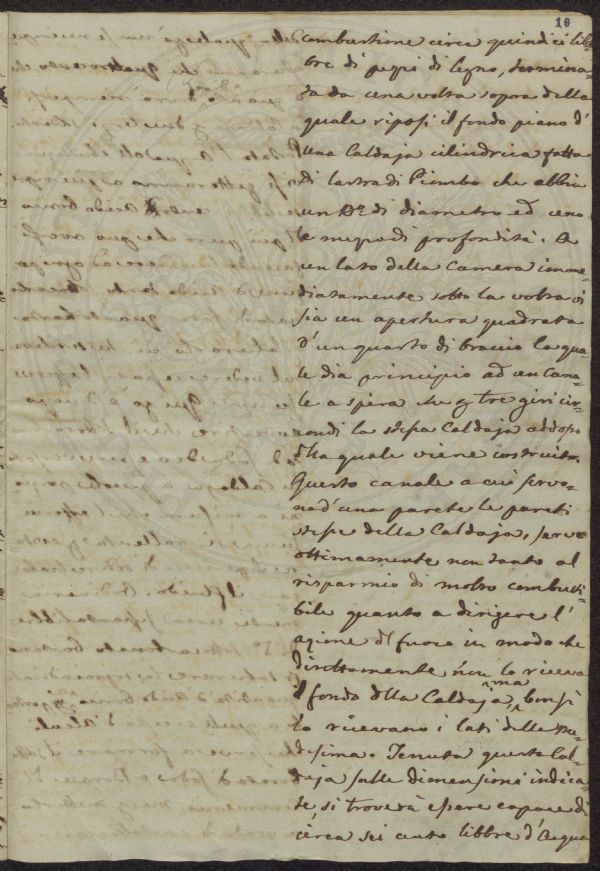 10
combustione circa quindici lib-
bre di pezzi di legno, termina-
ta da una volta sopra della
quale riposi il fondo piano d'
una Caldaja cilindrica fatta
di lastra di Piombo che abbia
un Br: di diametro ed uno
e mezzo di profondità. A
un lato della Camera imme-
diatamente sotto la volta vi
sia un apertura quadrata
d'un quarto di braccio la qua-
le dia principio ad un Cana-
le a spira che tre giri cir-
condi la stessa Caldaja addosso
alla quale viene costruito.
Questo canale a cui servo-
no d'una parete le pareti
stesse della Caldaja, serve
ottimamente non tanto al
risparmio di molto combusti-
bile quanto a dirigere l'
azione del fuoco in modo che
direttamente non lo riceva
il fondo della Caldaja, bensì
lo ricevano i lati della me-
desima. Tenuta questa Cal-
daja sulle dimensioni indica-
te, si troverà essere capace di
circa sei cento libbre d'Acqua